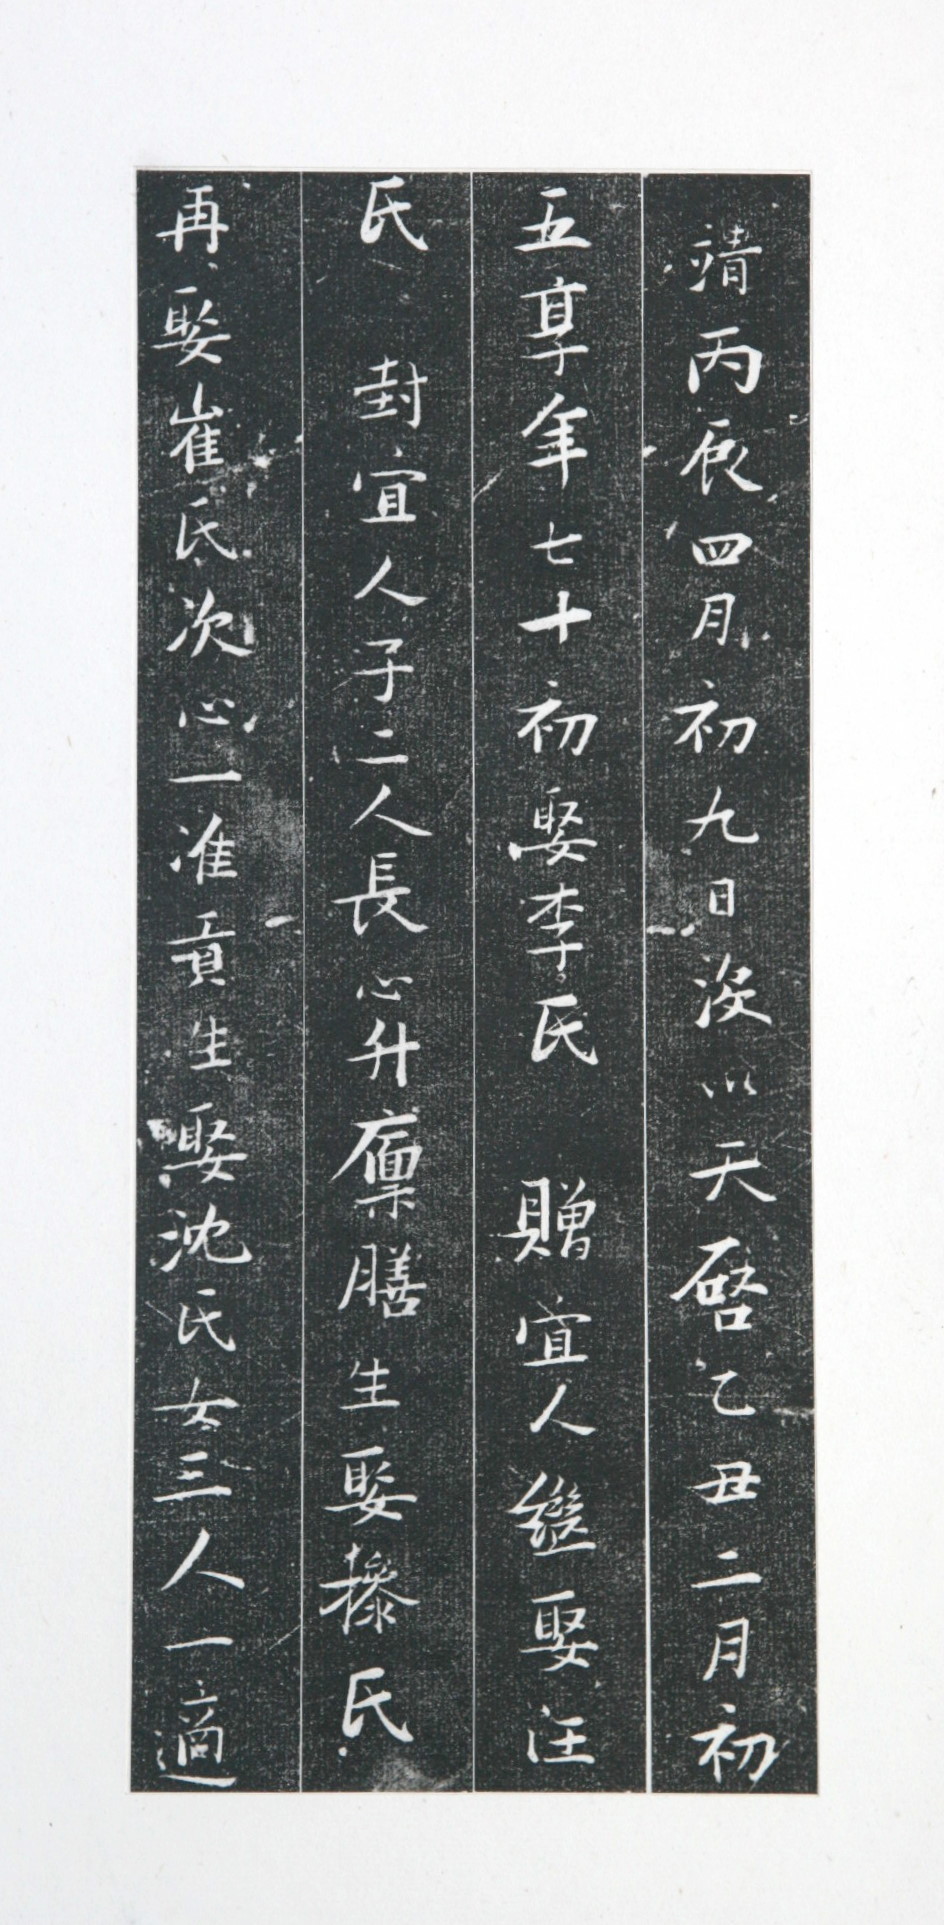 靖丙辰四月初九日没以天啓乙丑二月初
五享年七十初娶李氏 贈宜人繼娶汪
氏 封宜人子二人長心升廩膳生娶穆氏
再娶崔氏次心一准貢生娶沈氏女三人一適